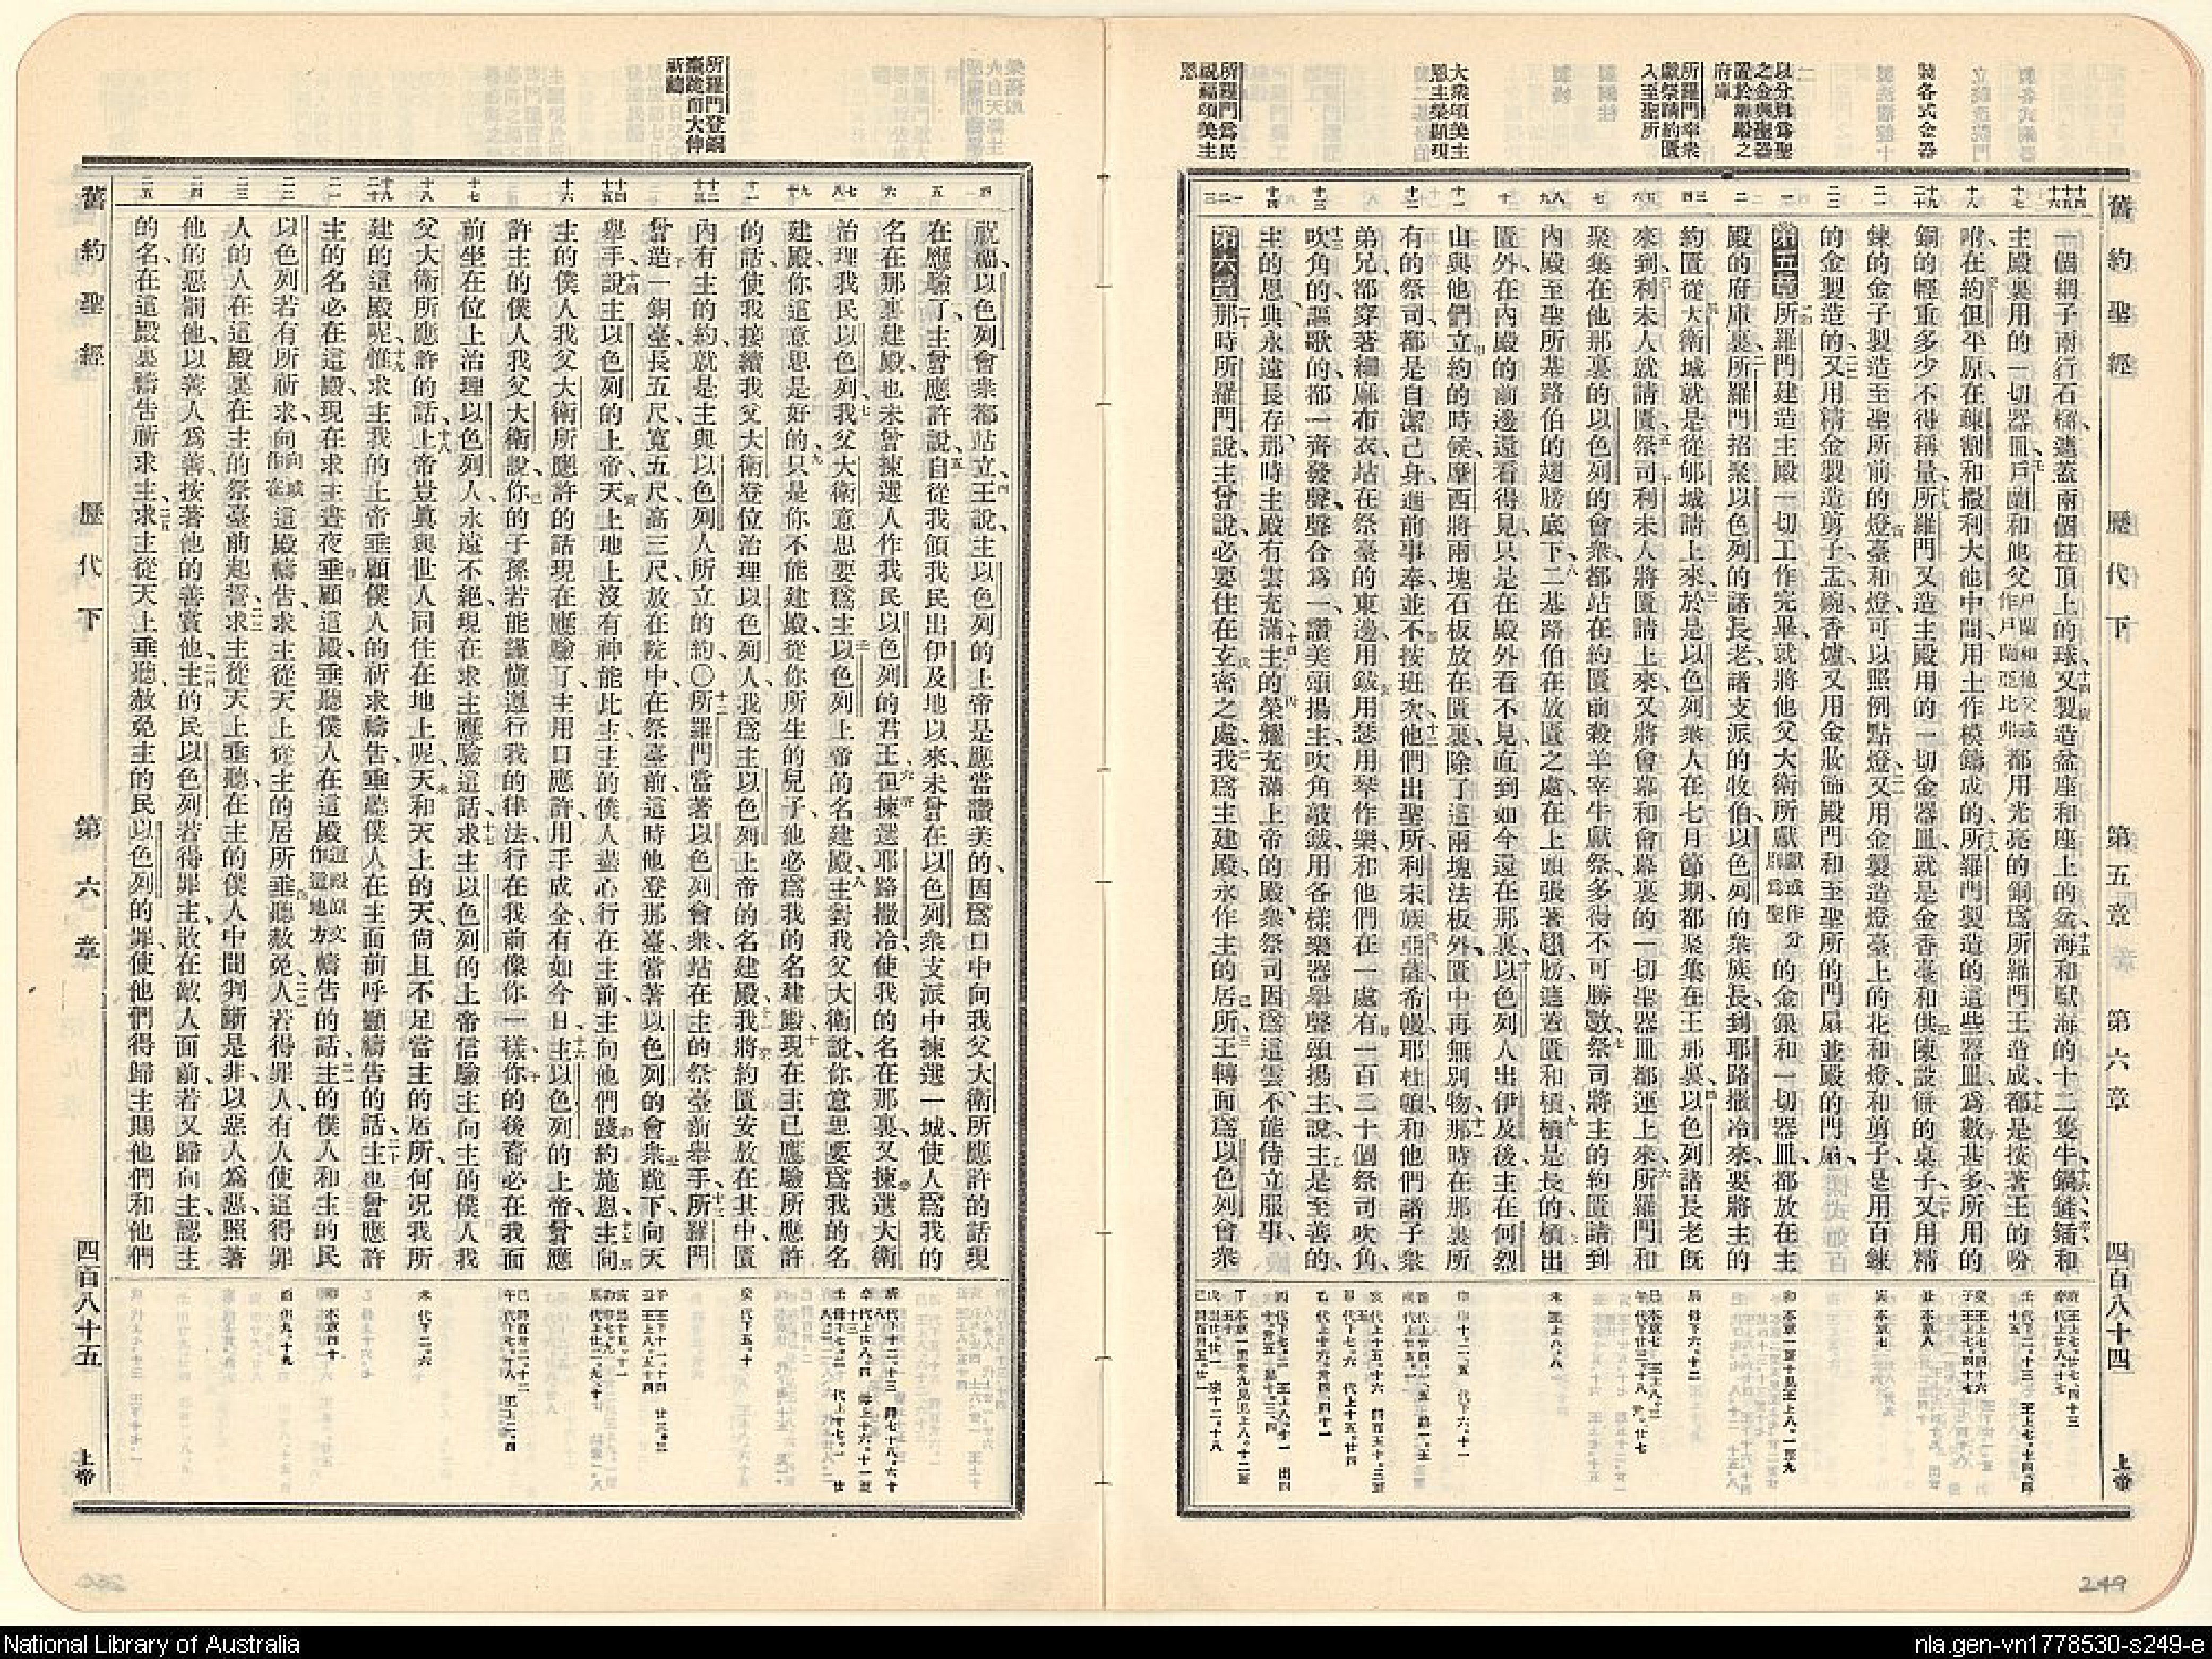 舊約聖經 歷代下 第五章 第六章 四百八十四 上帝
製各式金器
以分別爲聖
之金與聖器
置於聖殿之
府庫
所羅門率衆
獻祭請約匱
入至聖所
大衆頌美主
恩主榮顯現
所羅門爲民
祝福頌美主
恩
一個網子兩行石榴遮蓋兩個柱頂上的球又製造盆座和座上的盆海和馱海的十二隻牛鍋鏟鍤和
主殿裏用的一切器皿戶蘭和他父戶蘭和他父或作戶蘭亞比弗都用光亮的銅爲所羅門王造成都是按著王的吩
咐在約但平原在疎割和撒利大他中間用土作模鑄成的所羅門製造的這些器皿爲數甚多所用的
銅的輕重多少不得稱量所羅門又造主殿用的一切金器皿就是金香臺和供陳設餅的桌子又用精
鍊的金子製造至聖所前的燈臺和燈可以照例點燈又用金製造燈臺上的花和燈和剪子是用百鍊
的金製造的又用精金製造剪子盂碗香爐又用金妝飾殿門和至聖所的門扇並殿的門扇
第五章所羅門建造主殿一切工作完畢就將他父大衛所獻獻或作分別爲聖的金銀和一切器皿都放在主
殿的府庫裏所羅門招聚以色列的諸長老諸支派的牧伯以色列的衆族長到耶路撒冷來要將主的
約匱從大衛城就是從郇城請上來於是以色列衆人在七月節期都聚集在王那裏以色列諸長老旣
來到利未人就請匱祭司利未人將匱請上來又將會幕和會幕裏的一切聖器皿都運上來所羅門和
聚集在他那裏的以色列的會衆都站在約匱前殺羊宰牛獻祭多得不可勝數祭司將主的約匱請到
內殿至聖所基路伯的翅膀底下二基路伯在放匱之處在上頭張著翅膀遮蓋匱和槓槓是長的槓出
匱外在內殿的前邊還看得見只是在殿外看不見直到如今還在那裏以色列人出伊及後主在何烈
山與他們立約的時候摩西將兩塊石板放在匱裏除了這兩塊法板外匱中再無別物那時在那裏所
有的祭司都是自潔己身進前事奉並不按班次他們出聖所利未族亞薩希幔耶杜頓和他們諸子衆
弟兄都穿著細麻布衣站在祭臺的東邊用鈸用瑟用琴作樂和他們在一處有一百二十個祭司吹角
吹角的謳歌的都一齊發聲聲合爲一讚美頌揚主吹角敲鈸用各樣樂器舉聲頌揚主說主是至善的
主的恩典永遠長存那時主殿有雲充滿主的榮耀充滿上帝的殿衆祭司因爲這雲不能侍立服事
第六章那時所羅門說主曾說必要住在玄密之處我爲主建殿永作主的居所王轉面爲以色列會衆
所羅門登銅
臺跪而大伸
祈禱
祝福以色列會衆都站立王說主以色列的上帝是應當讚美的因爲口中向我父大衛所應許的話現
在應驗了主曾應許說自從我領我民出伊及地以來未曾在以色列衆支派中揀選一城使人爲我的
名在那裏建殿也未曾揀選人作我民以色列的君王但揀選耶路撒冷使我的名在那裏又揀選大衛
治理我民以色列我父大衛意思要爲主以色列上帝的名建殿主對我父大衛說你意思要爲我的名
建殿你這意思是好的只是你不能建殿從你所生的兒子他必爲我的名建殿現在主已應驗所應許
的話使我接續我父大衛登位治理以色列人我爲主以色列上帝的名建殿我將約匱安放在其中匱
內有主的約就是主與以色列人所立的約○所羅門當著以色列會衆站在主的祭臺前舉手所羅門
曾造一銅臺長五尺寬五尺高三尺放在院中在祭臺前這時他登那臺當著以色列的會衆跪下向天
舉手說主以色列的上帝天上地上沒有神能比主主的僕人盡心行在主前主向他們踐約施恩主向
主的僕人我父大衛所應許的話現在應驗了主用口應許用手成全有如今日主以色列的上帝曾應
許主的僕人我父大衛說你的子孫若能謹愼遵行我的律法行在我前像你一樣你的後裔必在我面
前坐在位上治理以色列人永遠不絕現在求主應驗這話求主以色列的上帝信驗主向主的僕人我
父大衛所應許的話上帝豈眞與世人同住在地上呢天和天上的天尙且不足當主的居所何况我所
建的這殿呢惟求主我的上帝垂顧僕人的祈求禱告垂聽僕人在主面前呼籲禱告的話主也曾應許
主的名必在這殿現在求主晝夜垂顧這殿垂聽僕人在這殿這殿原文作這地方禱告的話主的僕人和主的民
以色列若有所祈求向向或作在這殿禱告求主從天上從主的居所垂聽赦免人若得罪人有人使這得罪
人的人在這殿裏在主的祭臺前起誓求主從天上垂聽在主的僕人中間判斷是非以惡人爲惡照著
他的惡罰他以善人爲善按著他的善賞他主的民以色列若得罪主敗在敵人面前若又歸向主認主
的名在這殿裏禱告祈求主求主從天上垂聽赦免主的民以色列的罪使他們得歸主賜他們和他們
舊約聖經 歷代下 第六章 四百八十五 上帝
249
National Library of Australia
nla.gen-vn1778530-s249-e